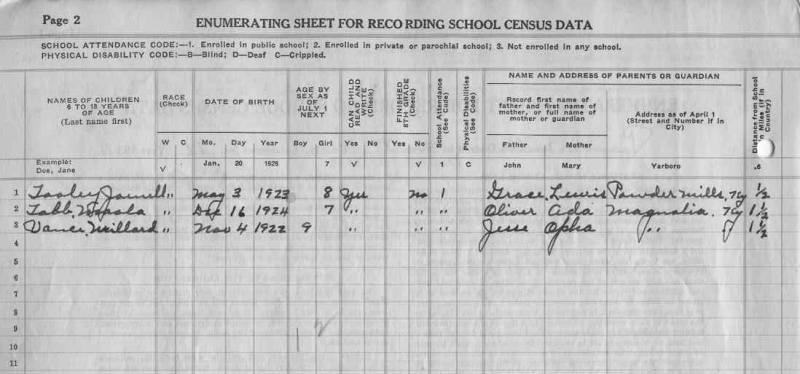 Page 2
ENUMERATING SHEET FOR RECORDING SCHOOL CENSUS DATA
SCHOOL ATTENDANCE CODE:—1. Enrolled in public school; 2. Enrolled in private or parochial school; 3. Not enrolled in any school.
PHYSICAL DISABILITY CODE:—B—Blind; D—Deaf C—Crippled.
NAMES OF CHILDREN
6 TO 18 YEARS
OF AGE
(Last name first)
RACE
(Check)
W C
DATE OF BIRTH
Mo. Day Year
AGE BY
SEX AS
OF
JULY 1
NEXT
Boy Girl
CAN CHILD
READ AND
WRITE
(Check)
Yes No
FINISHED
8TH GRADE
(Check)
Yes No
School Attendance
(See Code)
1
Physical Disabilities
(See Code)
C
NAME AND ADDRESS OF PARENTS OR GUARDIAN
Record first name of
father and first name of
mother, or full name of
mother or guardian
Father Mother
Address as of April 1
(Street and Number if in
City)
Distance from School
in Miles (if in
Country)
Example:
Doe, Jane V Jan. 20 1926 7 V V 1 C John Mary Yarboro .6
1 Tooley, " May 3 1923 8 Yes No 1 Grace Lewis Powder Mills, Ky 1/2
2 Tabb, " 16 1924 7 " " " Oliver Ada Magnolia, Ky 1 1/2
3 Vance, Millard " Nov 4 1922 9 " " " Jesse Opha " 1 1/2
4
5
6
7
8
9
10
11